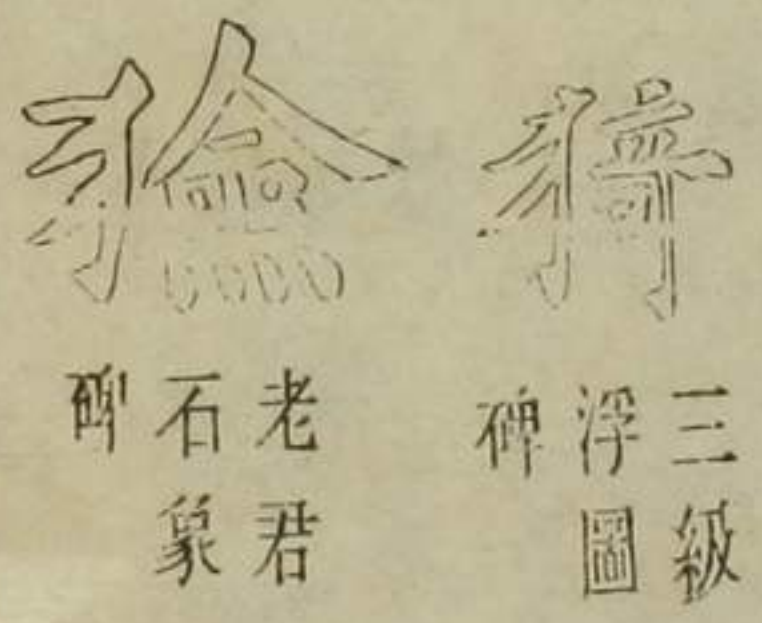 猗
三級
浮圖
碑
老君
石象
碑